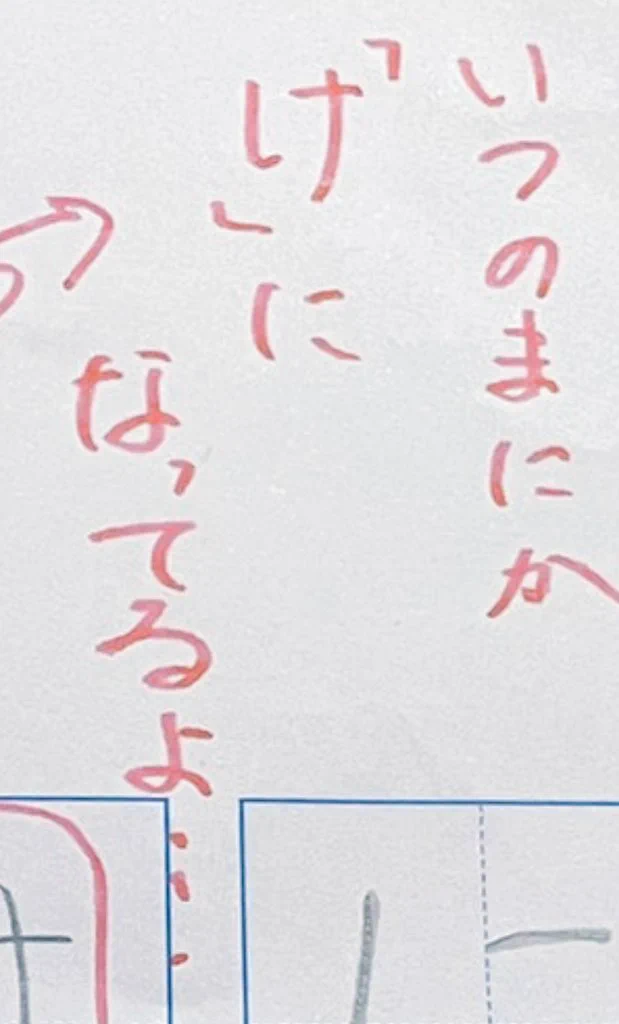 いつのまにか
「け」に
なってるよ…